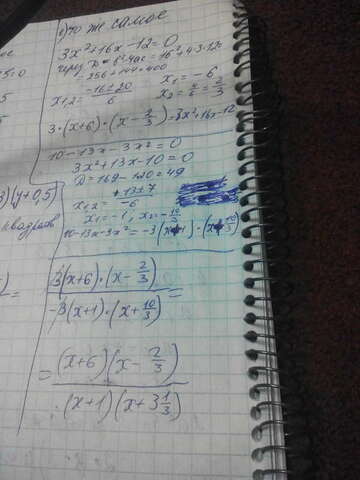 то же самое
3x²+16x-12=0
через D=b²-4ac=16²+4·3·12
=256+144=400
x₁,₂= (-16±20)/6   x₁=-6
x₂=4/6=2/3
3·(x+6)·(x-2/3)=3x²+16x-12
10-13x-3x²=0
3x²+13x-10=0
D=169-120=49
x₁,₂= (+13±7)/-6
x₁=-1; x₂=-10/3
10-13x-3x²=-3(x+1)·(x+10/3)
3)(y+0,5)
3(x+6)·(x-2/3)
-3(x+1)·(x+10/3) =
= (x+6)(x-2/3)
(x+1)(x+3 1/3)